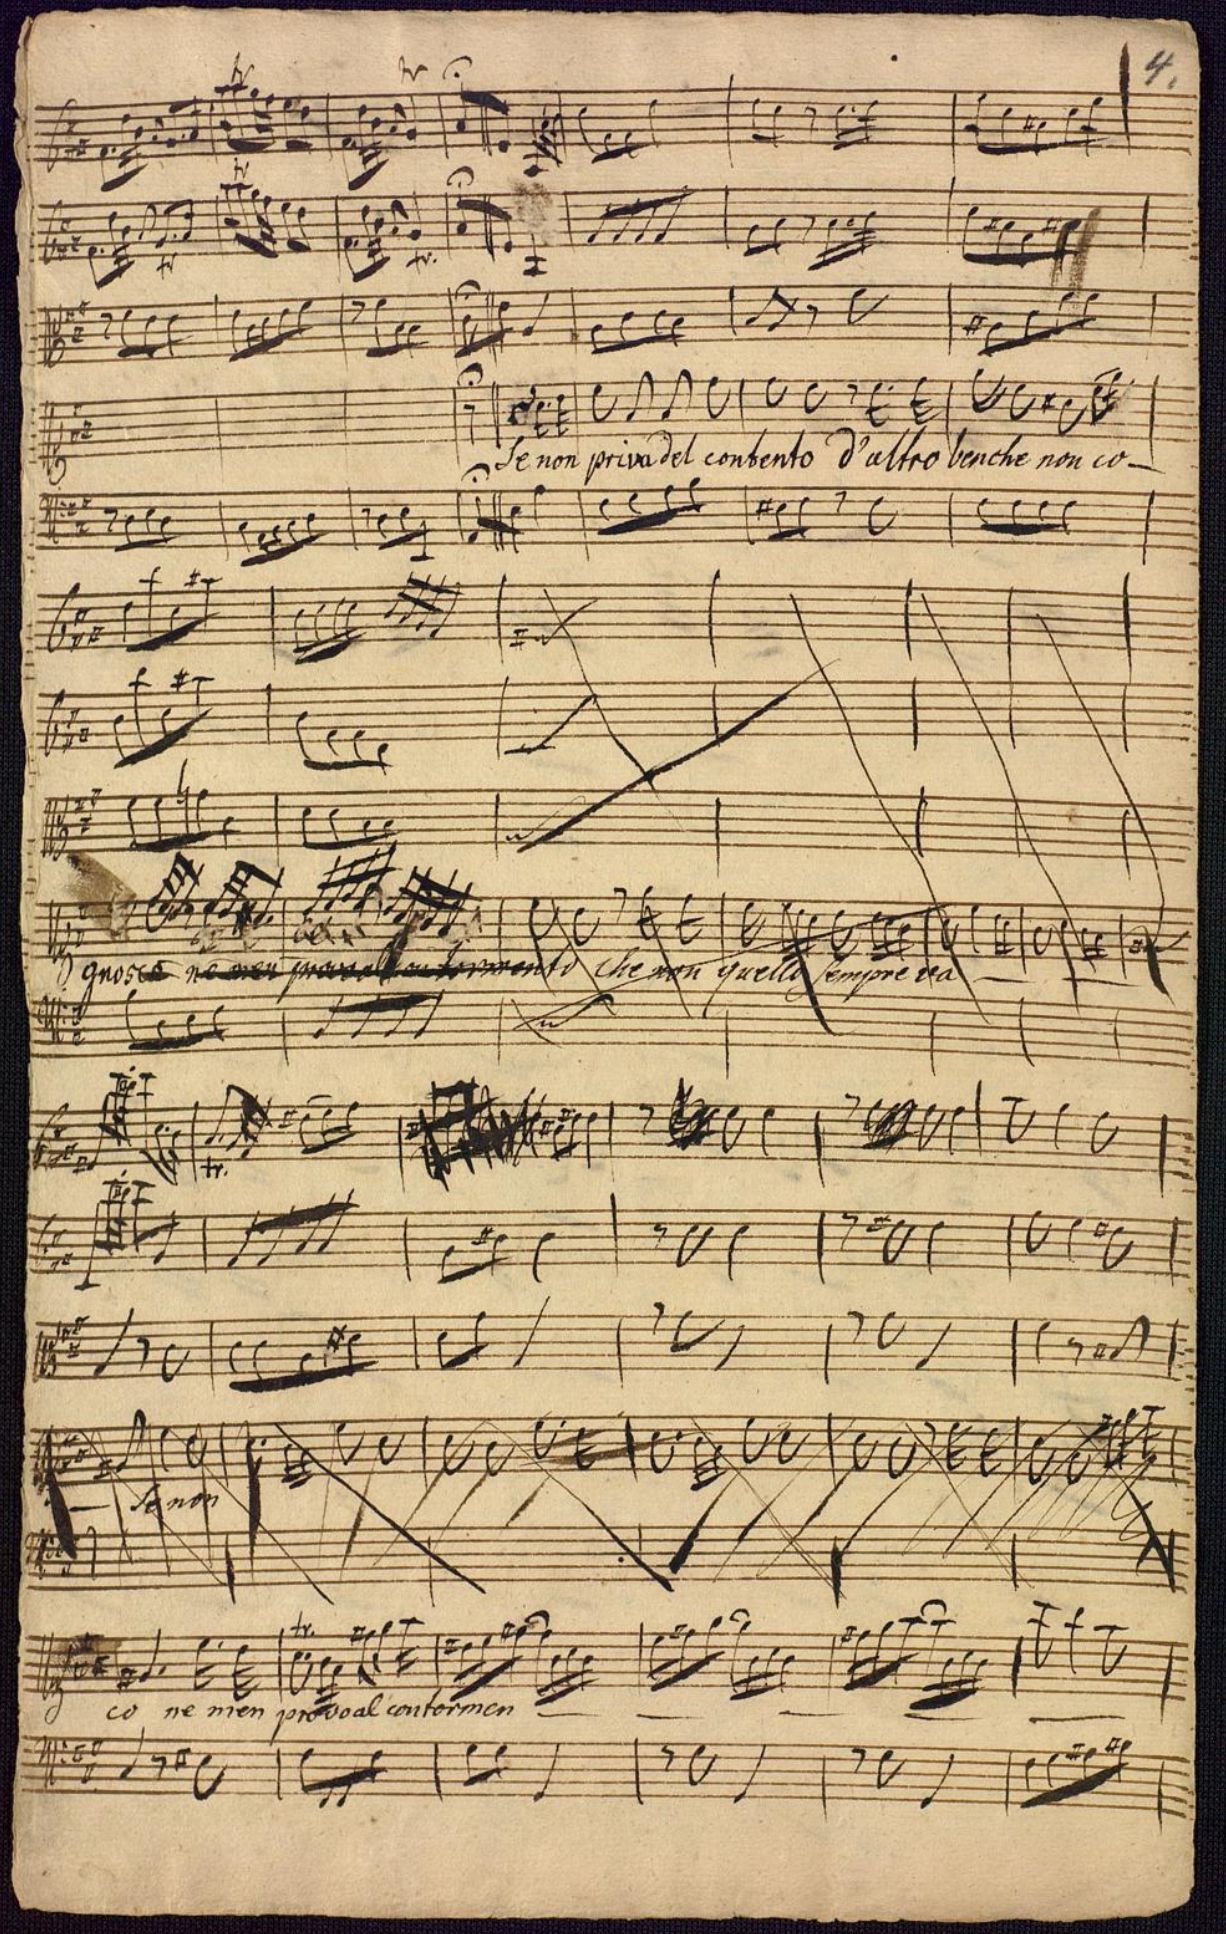 4.
tr tr
tr
tr tr.
Se non priva del contento d'altro benche non co-
gnosco ne men provoal contormento che non quello sempre rea
tr.
Se non
tr.
co ne men provoal contormen